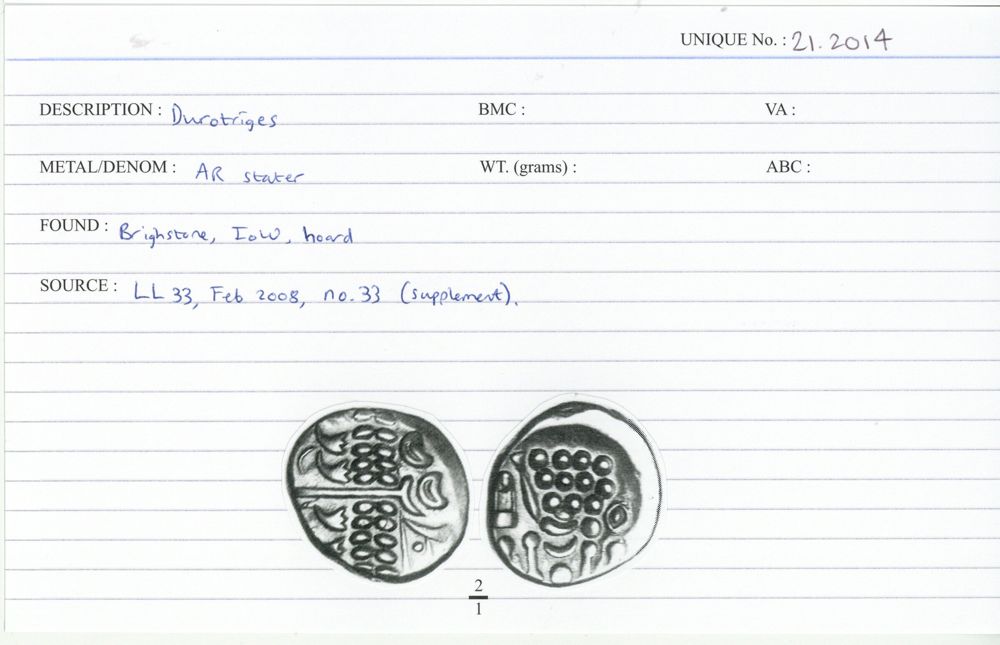 UNIQUE No. : 21.2014
DESCRIPTION : Durotriges BMC : VA :
METAL/DENOM : AR stater WT. (grams) : ABC :
FOUND : Brighstone, IoW, hoard
SOURCE : LL 33, Feb 2008, no. 33 (supplement).
2
1